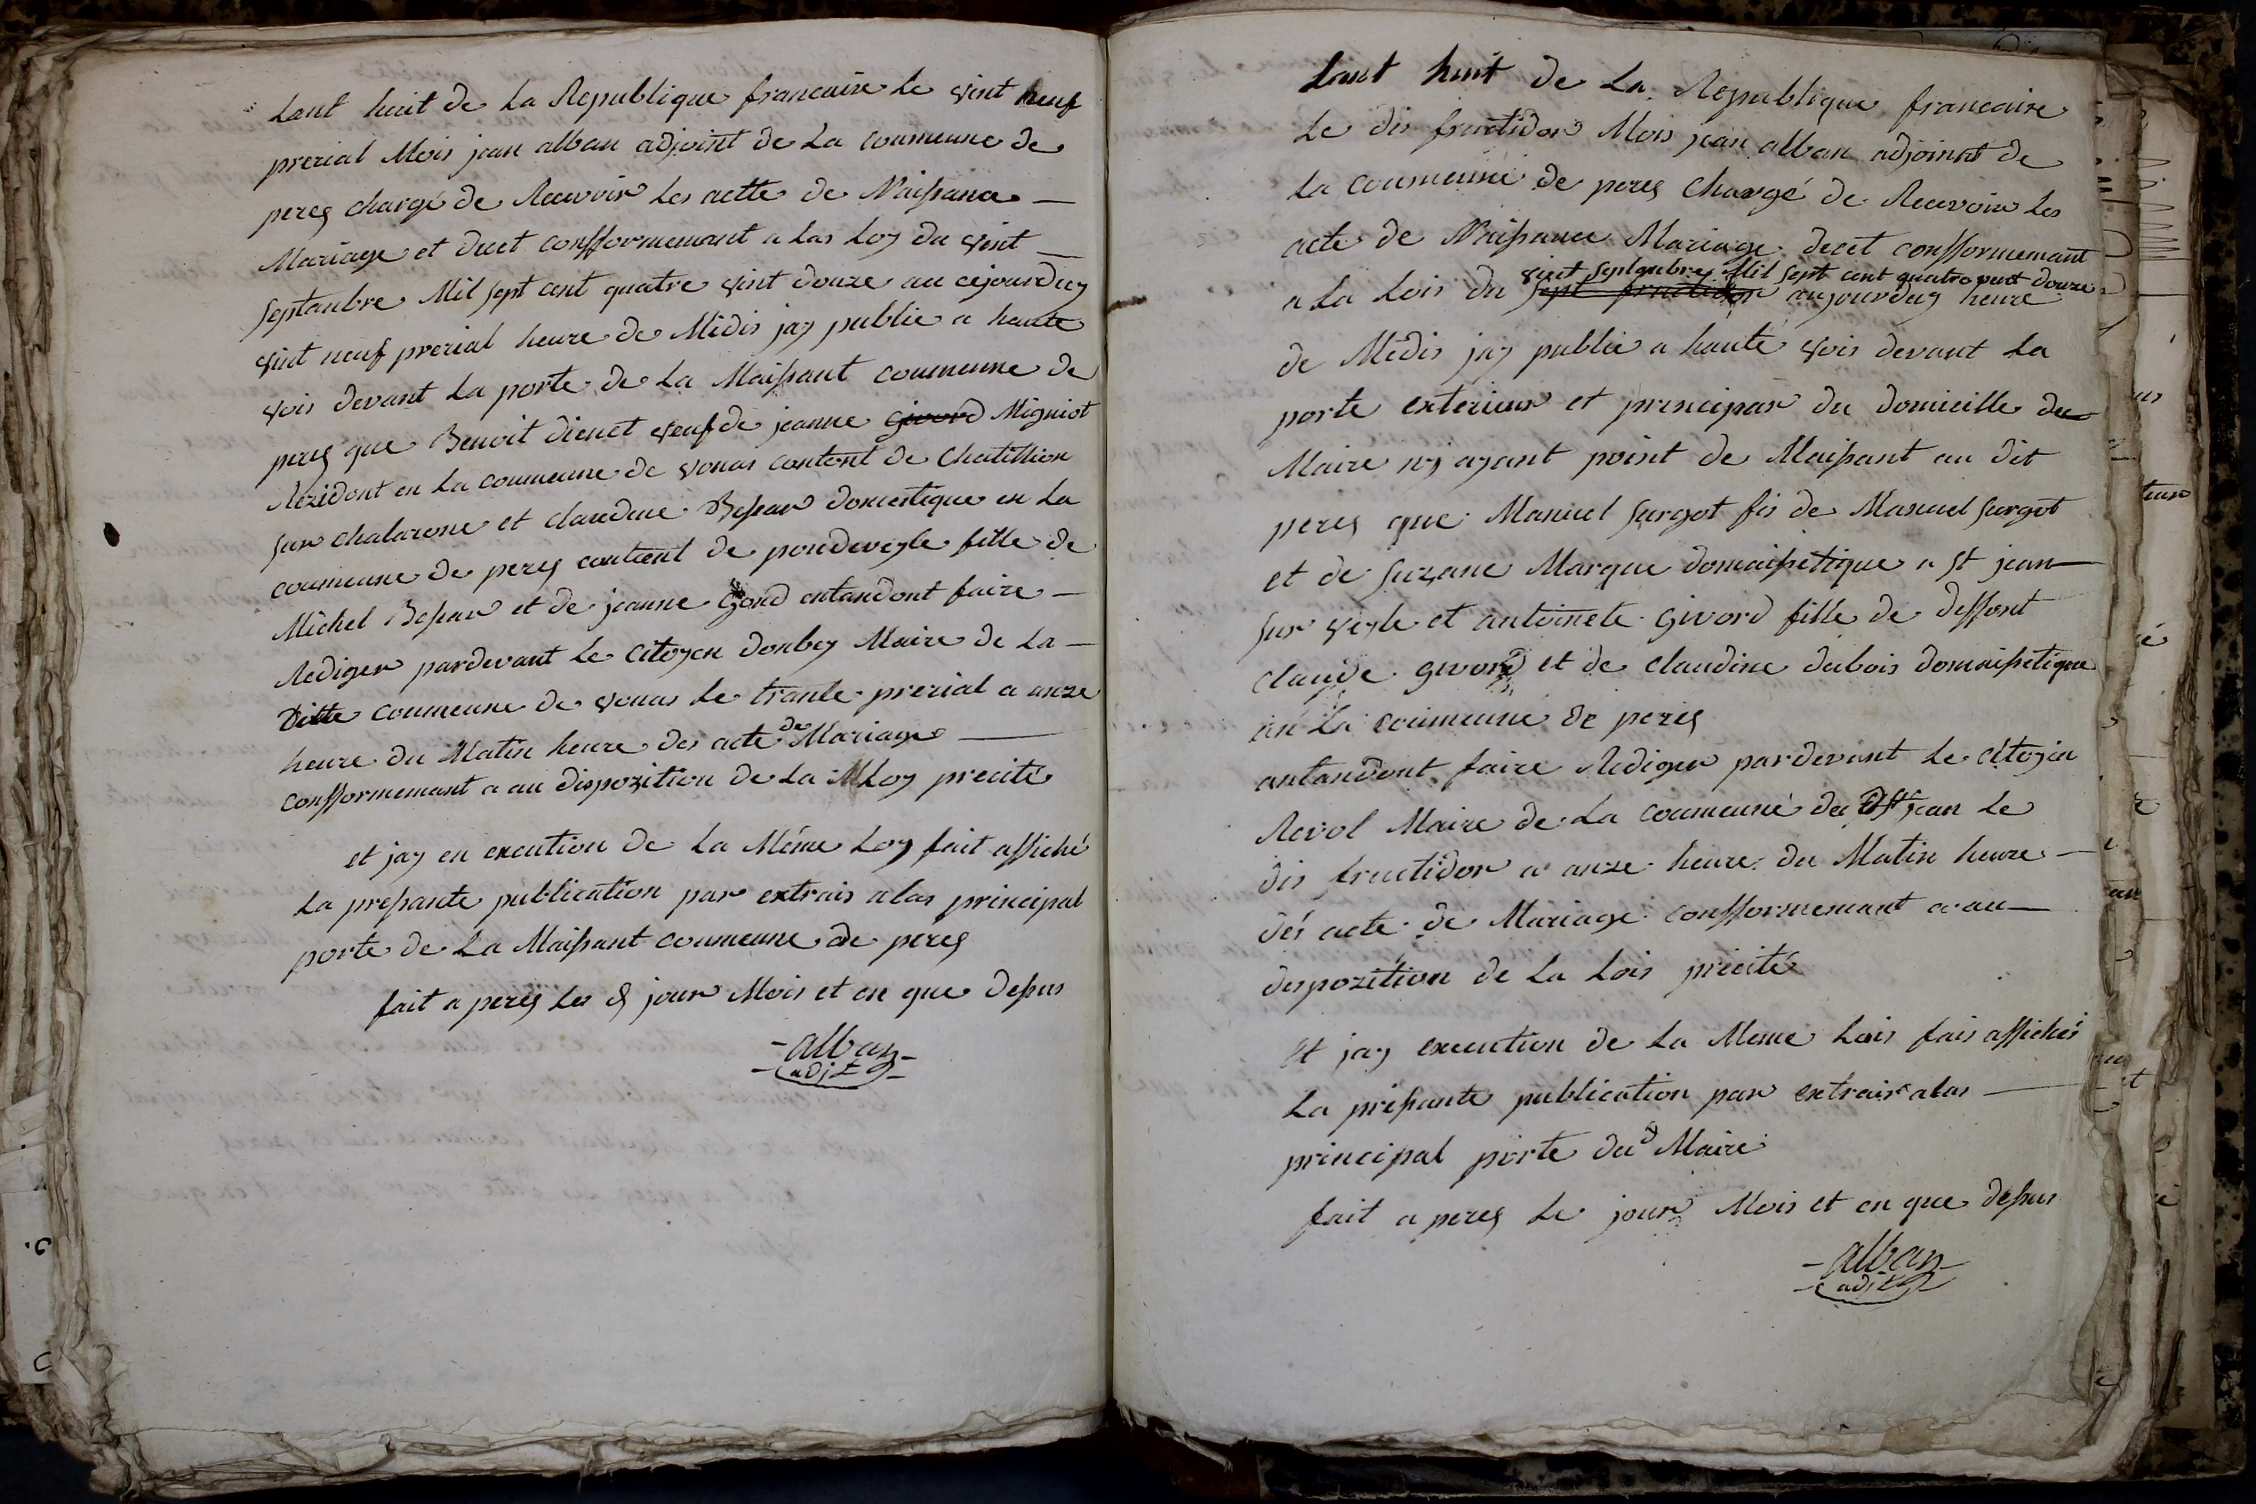 Lant huit de La Republique francaise le vint neuf
prerial Mois jean alban adjoint de La coumeune de
perex chargé de Recevoir Les actte de Naissance —
Mariage et decet consfformemant a Las Loy du vint —
Septanbre Mil sept cent quatre vint douze au cejourduy
vint neuf prerial heure de Midis jay publie a haute
vois devant La porte de La Maissant coumeune de
perex que Benoit dienet veuf de jeanne givord Migniot
Rezident en La coumeune de vonas contont de Chatillion
sur chalarone et claudine Bessar domestique en La
coumeune de perex contont de pondeveyle fille de
Michel Bessar et de jeanne Gond entandont faire —
Rediger pardevant Le Citoyen donbey Maire de La —
Ditte coumeune de vonas Le trante prerial a onze
heure du Matin heure des acte de Mariage —
consfformemant a au dispozition de La Loy precité
et jay en execution de La Méme Loy fait affiché
La pressante publication par extrais a las principal
porte de La Maissant coumeune de perex
fait a perex Les & jour Mois et en que dessus
- alban -
- adjt -
Lant huit de La Republique francaise
Le dis fructidor Mois jean alban adjoint de
La coumeune de perex Chargé de Recevoir Les
acte de Naissance Mariage decet consfformemant
vint Septanbre Mil sept cent quatre vint douze
a La Lois du sept fructidor aujourduy heure
de Midis jay publie a haute vois devant La
porte exterieur et principar du domicille du
Maire ny ayant point de Maissant au dit
perex que Manuel surgot fis de Manuel surgot
et de suzane Marque domaissetique a st jean —
sur veyle et antoinete givord fille de deffont
claude givord et de claudine dubois domaissetique
en La coumeune de perex
antandont faire Rediger pardevant Le Citoyen
Revol Maire de La coumeune du st jean Le
dis fructidor a onze heure du Matin heure —
dés acte de Mariage consfformemant a au —
dispozition de La Lois précité
et jay execution de La Meme Lois fais affichés
La préssante publication par extrais a las —
principal porte du d Maire
fait a perex Le jour Mois et en que dessus
- alban -
- adjt -